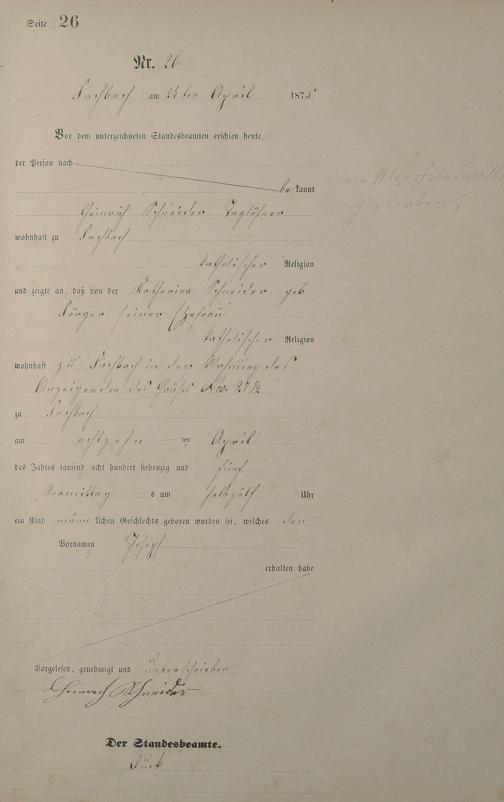 Seite 26
Nr. 26
Fachbach am 24ten April 1875
Vor dem unterzeichneten Standesbeamten erschien heute,
der Person nach
be kannt
Heinrich Schneider Taglöhner
wohnhaft zu Fachbach
katholischer Religion
und zeigte an, daß von der Katharina Schneider geb
seiner Ehefrau
katholischer Religion
wohnhaft zu Fachbach in der Wohnung des
Anzeigenden des Hauses Nro. 25 1/2
zu Fachbach
am achtzehn ten April
des Jahres tausend acht hundert siebenzig und fünf
Vormittag s um halbzwölf Uhr
ein Kind männ lichen Geschlechts geboren worden sei, welches den
Vornamen Joseph
erhalten habe
Vorgelesen, genehmigt und unterschrieben
Heinrich Schneider
Der Standesbeamte.
am 21ten
gestorben,